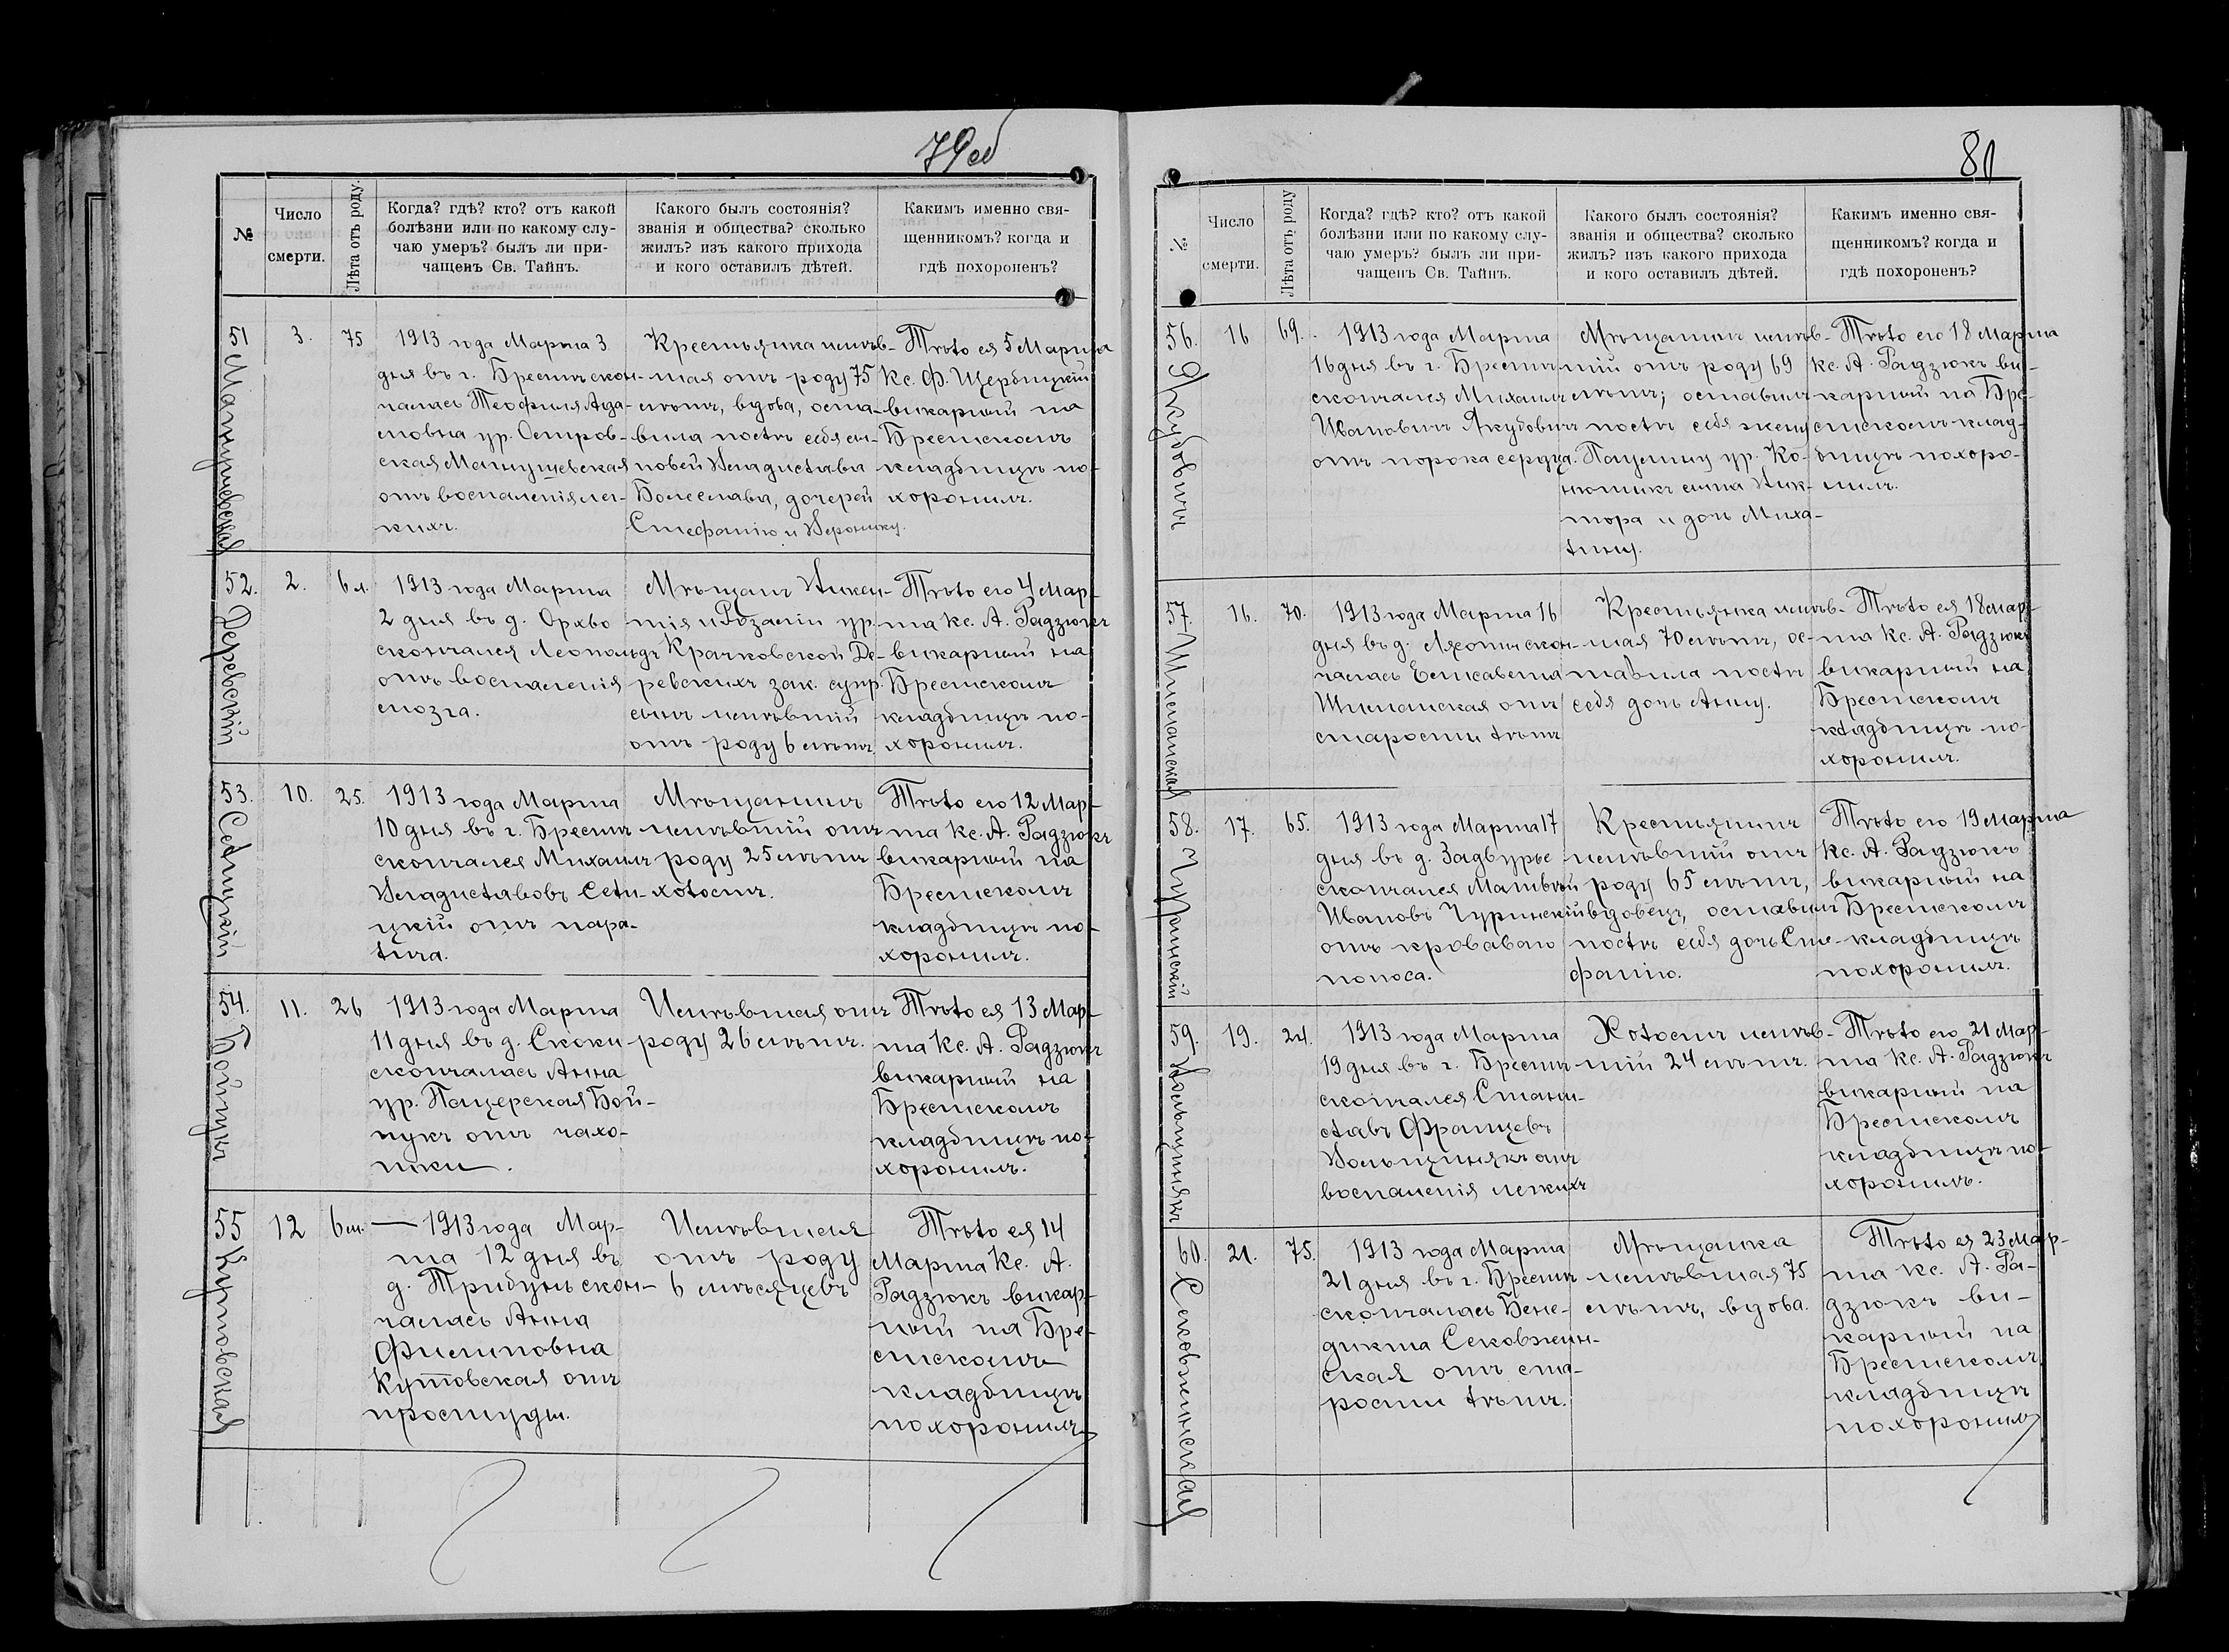 79об
№
Число
смерти.
Лѣта отъ роду.
Когда? гдѣ? кто? отъ какой
болѣзни или по какому слу-
чаю умеръ? былъ ли при-
чащенъ Св. Тайнъ.
Какого былъ состоянія?
званія и общества? сколько
жилъ? изъ какого прихода
и кого оставилъ дѣтей.
Какимъ именно свя-
щенникомъ? когда и
гдѣ похороненъ?
51
3.
75
1913 года Марта 3
дня въ г. Брестѣ скон-
чалась Теофиля Ада-
мовна ур. Остров-
ская Манушевская
отъ воспаленія лег-
кихъ.
Крестьянка имѣв-
шая отъ роду 75
лѣтъ, вдова, оста-
вила послѣ себя сы-
новей Владислава
Болеслава, дочерей
Стефанію и Веронику.
Тѣло ея 5 Марта
Кс. Ф. Щербицкій
викарный на
Брестскомъ
кладбищѣ по-
хоронилъ.
52.
2.
6 л.
Деревскій
1913 года Марта
2 дня въ д. Орхво
скончался Леопольдъ
отъ воспаленія
мозга.
Мѣщанъ Викен-
тія и Розаліи ур.
Крачковской Де-
ревскихъ зак. супр.
сынъ имѣвшій
отъ роду 6 лѣтъ
Тѣло его 4 Мар-
та Кс. А. Радзюкъ
викарный на
Брестскомъ
кладбищѣ по-
хоронилъ.
53.
10.
25.
Селицкій
1913 года Марта
10 дня въ г. Брестѣ
скончался Михаилъ
Владиславовъ Сели-
цкій отъ пара-
лича.
Мѣщанинъ
имѣвшій отъ
роду 25 лѣтъ
холостъ.
Тѣло его 12 Мар-
та Кс. А. Радзюкъ
викарный на
Брестскомъ
кладбищѣ по-
хоронилъ.
54.
11.
26
Бойчукъ
1913 года Марта
11 дня въ д. Скоки
скончалась Анна
ур. Пащерская Бой-
чукъ отъ чахо-
тки.
Имѣвшая отъ
роду 26 лѣтъ.
Тѣло ея 13 Мар-
та Кс. А. Радзюкъ
викарный на
Брестскомъ
кладбищѣ по-
хоронилъ.
55
12
6 м.
Кутовская
— 1913 года Мар-
та 12 дня въ
д. Трибунь скон-
чалась Анна
Филиповна
Кутовская отъ
простуды.
Имѣвшая
отъ роду
6 мѣсяцевъ
Тѣло ея 14
Марта Кс. А.
Радзюкъ викар-
ный на Бре-
стскомъ
кладбищѣ
похоронилъ
№
Число
смерти.
Лѣта отъ роду
Когда? гдѣ? кто? отъ какой
болѣзни или по какому слу-
чаю умеръ? былъ ли при-
чащенъ Св. Тайнъ.
Какого былъ состоянія?
званія и общества? сколько
жилъ? изъ какого прихода
и кого оставилъ дѣтей.
Какимъ именно свя-
щенникомъ? когда и
гдѣ похороненъ?
56.
16
69.
Якубовичъ
1913 года Марта
16 дня въ г. Брестѣ
скончался Михаилъ
Ивановичъ Якубовичъ
отъ порока сердца.
Мѣщанинъ имѣв-
шій отъ роду 69
лѣтъ; оставилъ
послѣ себя жену
Паулину ур. Ко-
нюшикъ сына Вик-
тора и дочь Миха-
лину.
Тѣло его 18 Марта
Кс. А. Радзюкъ ви-
карный на Бре-
стскомъ клад-
бищѣ похоро-
нилъ.
57.
16.
70.
Шиманская
1913 года Марта 16
дня въ д. Ляхоты скон-
чалась Елисавета
Шиманская отъ
старости лѣтъ
Крестьянка имѣв-
шая 70 лѣтъ, ос-
тавила послѣ
себя дочь Анну.
Тѣло ея 18 Мар-
та Кс. А. Радзюкъ
викарный на
Брестскомъ
кладбищѣ по-
хоронилъ.
58.
17.
65.
Чуринскій
1913 года Марта 17
дня въ д. Задвурье
скончался Матвѣй
Ивановъ Чуринскій
отъ кроваваго
поноса.
Крестьянинъ
имѣвшій отъ
роду 65 лѣтъ,
вдовецъ, оставилъ
послѣ себя дочь Сте-
фанію.
Тѣло его 19 Марта
Кс. А. Радзюкъ
викарный на
Брестскомъ
кладбищѣ
похоронилъ.
59.
19.
24.
Вольщинякъ
1913 года Марта
19 дня въ г. Брестѣ
скончался Стани-
славъ Францевъ
Вольщинякъ отъ
воспаленія легкихъ
Холостъ имѣв-
шій 24 лѣтъ.
Тѣло его 21 Мар-
та Кс. А. Радзюкъ
викарный на
Брестскомъ
кладбищѣ по-
хоронилъ.
60.
21.
75.
Сековжинская
1913 года Марта
21 дня въ г. Брестѣ
скончалась Бене-
дикта Сековжин-
ская отъ ста-
рости лѣтъ.
Мѣщанка
имѣвшая 75
лѣтъ, вдова.
Тѣло ея 23 Мар-
та Кс. А. Ра-
дзюкъ ви-
карный на
Брестскомъ
кладбищѣ
похоронилъ